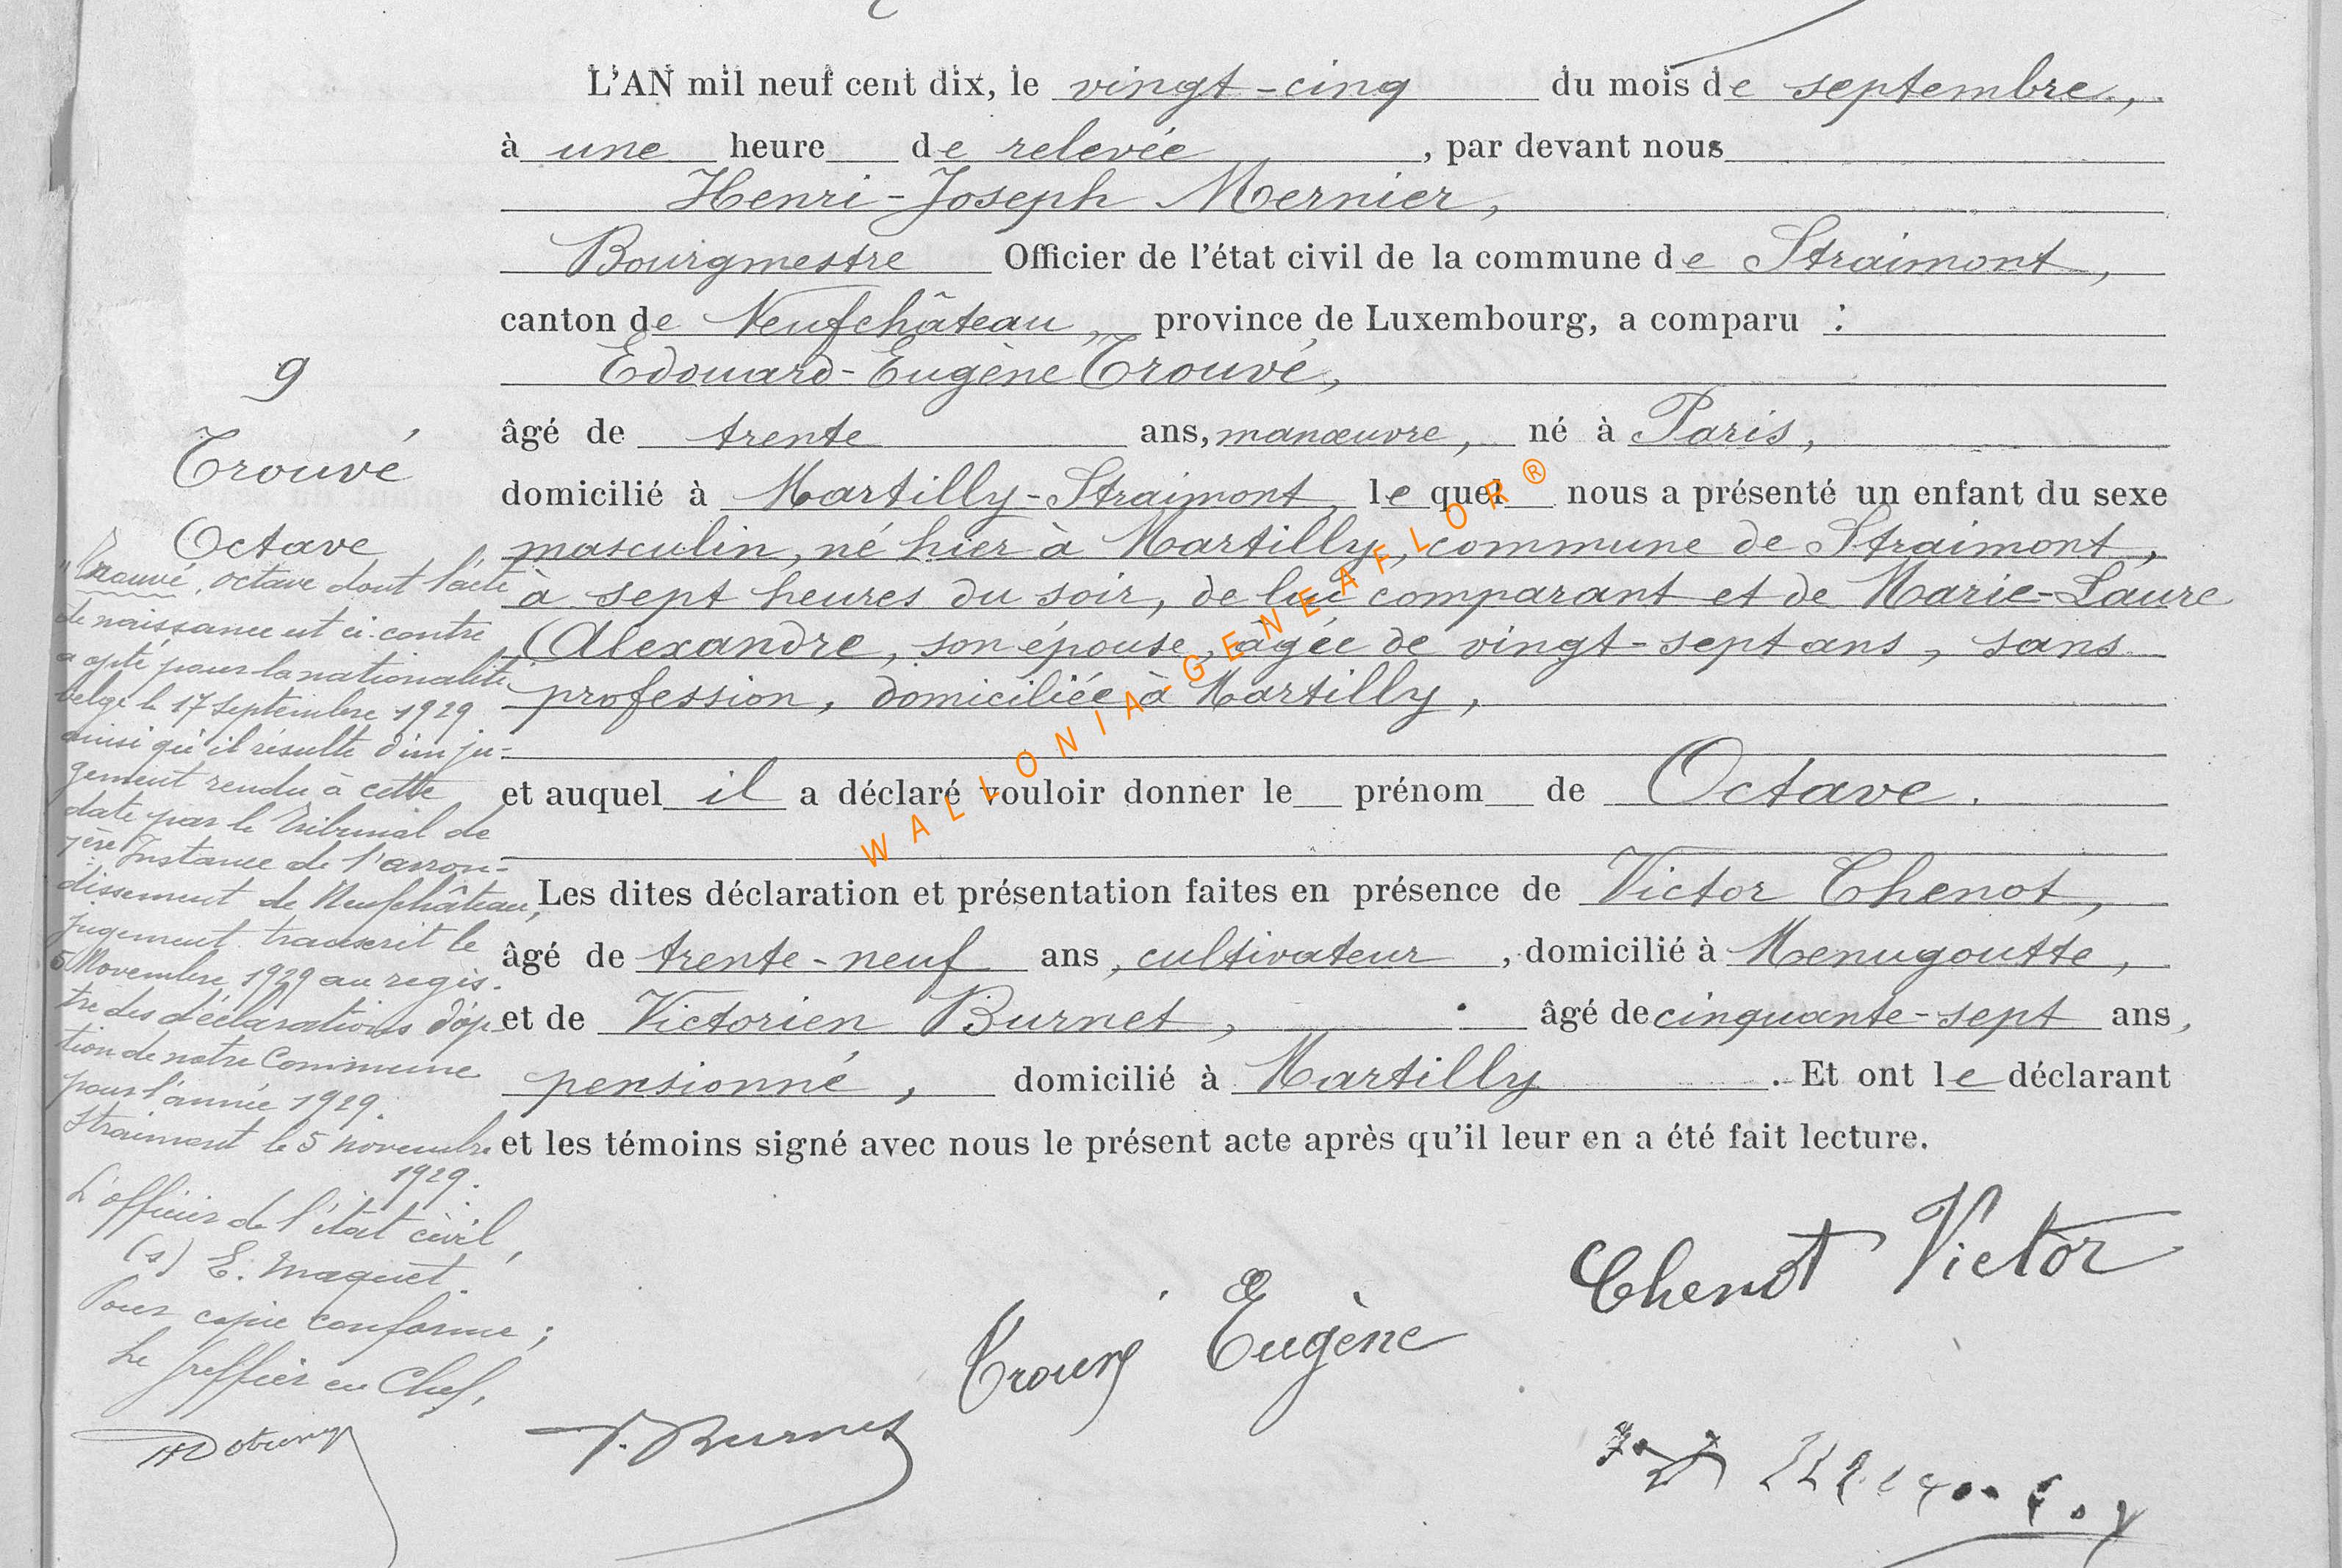 L'AN mil neuf cent dix, le vingt-cinq du mois de septembre,
à une heure de relevée, par devant nous
Henri-Joseph Mernier,
Bourgmestre Officier de l'état civil de la commune de Straimont,
canton de Neufchâteau, province de Luxembourg, a comparu :
Edouard-Eugène Trouvé,
âgé de trente ans, manœuvre, né à Paris,
domicilié à Martilly-Straimont, le quel nous a présenté un enfant du sexe
masculin, né hier à Martilly, commune de Straimont,
à sept heures du soir, de lui comparant et de Marie-Laure
Alexandre, son épouse, âgée de vingt-sept ans, sans
profession, domiciliée à Martilly,
et auquel il a déclaré vouloir donner le prénom de Octave.
Les dites déclaration et présentation faites en présence de Victor Chenot,
âgé de trente-neuf ans, cultivateur, domicilié à Menugoutte,
et de Victorien Burnet, âgé de cinquante-sept ans,
pensionné, domicilié à Martilly. Et ont le déclarant
et les témoins signé avec nous le présent acte après qu'il leur en a été fait lecture.
9
Trouvé
Octave
"Trouvé, octave dont l'acte
de naissance est ci-contre
a opté pour la nationalité
belge le 17 septembre 1929
ainsi qu'il résulte d'un ju-
gement rendu à cette
date par le Tribunal de
1ère Instance de l'arron-
dissement de Neufchâteau,
jugement transcrit le
5 Novembre 1929 au regis-
tre des déclarations d'op-
tion de notre Commune
pour l'année 1929.
Straimont le 5 novembre
1929.
L'officier de l'état civil,
(s) E. Maquet.
Pour copie conforme;
Le Greffier en Chef,
Chenot Victor
Trouvé Eugène
V. Burnet
WALLONIA-GENEAFLOR®